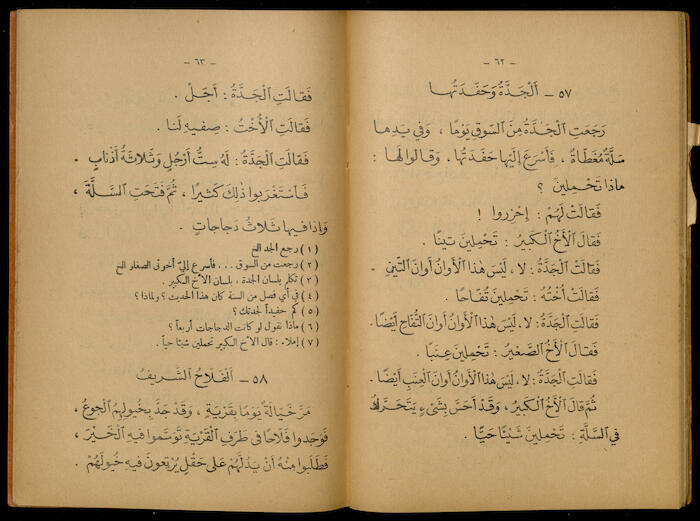 - ٦٢ -
٥٧ - اَلْجَدَّةُ وَحَفَدَتُها
رَجَعَتِ الْجَدَّةُ مِنَ السّوقِ يَوْمًا ، وَفي يَدِها
سَلَّةٌ مُغَطّاةٌ ، فَأَسْرَعَ إِلَيْها حَفَدَتُها ، وَقالوا لَها :
ماذا تَحْمِلينَ ؟
فَقالَتْ لَهُمْ : اِحْزِروا !
فَقالَ الْأَخُ الْكَبيرُ : تَحْمِلينَ تينًا .
فَقالَتِ الْجَدَّةُ : لا ، لَيْسَ هٰذا الْأَوانُ أَوانَ التّينِ .
فَقالَتْ أُخْتُهُ : تَحْمِلينَ تُفّاحًا .
فَقالَتِ الْجَدَّةُ : لا ، لَيْسَ هٰذا الْأَوانُ أَوانَ التُّفّاحِ أَيْضًا .
فَقالَ الْأَخُ الصَّغيرُ : تَحْمِلينَ عِنَبًا .
فَقالَتِ الْجَدَّةُ : لا ، لَيْسَ هٰذا الْأَوانُ أَوانَ الْعِنَبِ أَيْضًا .
ثُمَّ قالَ الْأَخُ الْكَبيرُ ، وَقَدْ أَحَسَّ بِشَيْءٍ يَتَحَرَّكُ
في السَّلَّةِ : تَحْمِلينَ شَيْئًا حَيًّا .
- ٦٣ -
فَقالَتِ الْجَدَّةُ : أَجَلْ .
فَقالَتِ الْأُخْتُ : صِفيهِ لَنا .
فَقالَتِ الْجَدَّةُ : لَهُ سِتُّ أَرْجُلٍ وَثَلاثَةُ أَذْنابٍ .
فَاسْتَغْرَبوا ذٰلِكَ كَثيرًا ، ثُمَّ فَتَحَتِ السَّلَّةَ ،
وَإِذا فيها ثَلاثُ دَجاجاتٍ .
(١) رجع الجد الخ
(٢) رجعت من السوق ... فأسرع إليّ أخوتي الصغار الخ
(٣) تكلم بلسان الجدة ، بلسان الأخ الكبير .
(٤) في أي فصل من السنة كان هذا الحديث ؟ ولماذا ؟
(٥) كم حفيداً لجدتك ؟
(٦) ماذا نقول لو كانت الدجاجات أربعاً ؟
(٧) إملاء : قال الأخ الكبير تحملين شيئاً حياً .
٥٨ - اَلْفَلّاحُ الشَّريفُ
مَرَّ خَيّالَةٌ يَوْمًا بِقَرْيَةٍ ، وَقَدْ جَدَّ بِخُيولِهِمِ الْجوعُ ،
فَوَجَدوا فَلّاحًا في طَرَفِ الْقَرْيَةِ تَوَسَّموا فيهِ الْخَيْرَ ،
فَطَلَبوا مِنْهُ أَنْ يَدُلَّهُمْ عَلى حَقْلٍ يُرْتِعونَ فيهِ خُيولَهُمْ .